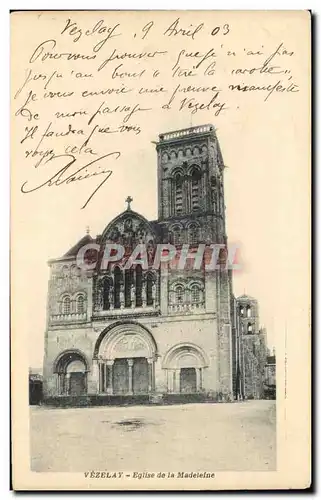 Vezelay 9 Avril 03
Pour vous prouver que je n'ai pas
jusqu'au bout "tiré la carotte"
je vous envoie une preuve manifeste
de mon passage à Vezelay.
Il faudra que vous
voyez cela
CPARAMA
VÉZELAY - Eglise de la Madeleine